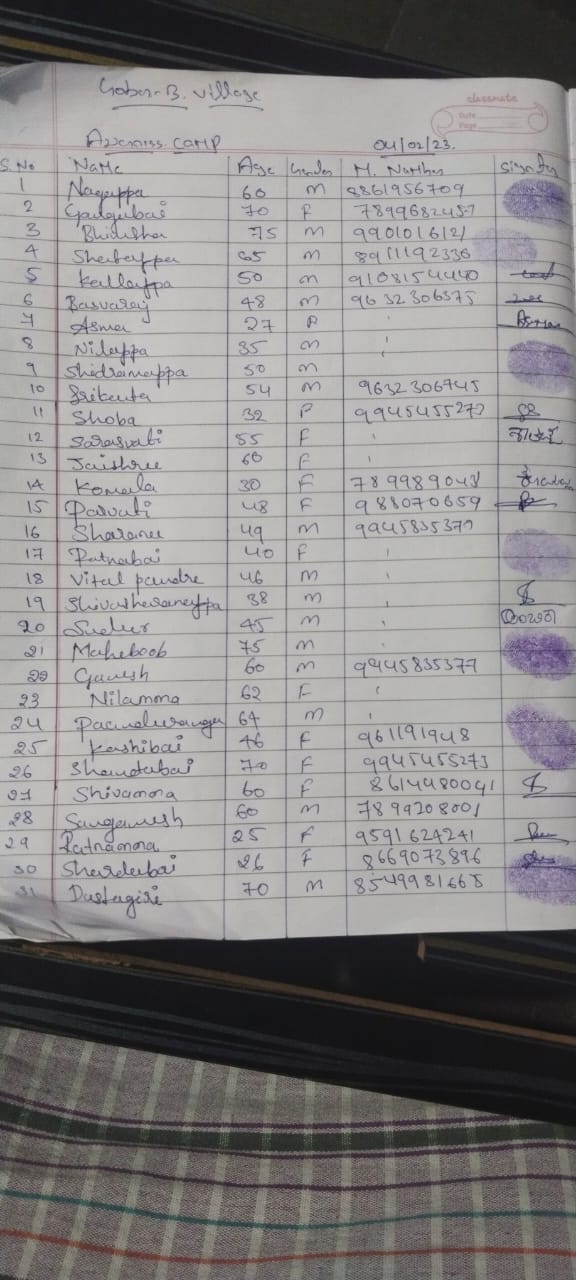 Gobur-B. Village
classmate
Date
Page
Awerniss. CAMP 04/02/23.
S.No Name Age Gender M. Number Sign
1 Nagappa 60 M 8861956709
2 70 F 7899682457
3 75 M 9901016121
4 65 M 8951192336
5 Kallappa 50 M 9108154440
6 Basvaraj 48 M 9632306375
7 Asma 27 F "
8 Nilappa 35 M "
9 Shidramappa 50 M
10 Srikanta 54 M 9632306745
11 Shoba 32 F
12 Sarasvati 55 F "
13 Jaishree 60 F "
14 Komala 30 F
15 Parvati 48 F 988070659
16 Sharanu 49 M 9945835377
17 Ratnabai 40 F "
18 Vital 46 M "
19 Shivasharanappa 38 M "
20 45 M "
21 Maheboob 75 M "
22 Ganesh 60 M 9945835377
23 Nilamma 62 F "
24 64 M "
25 Kashibai 46 F 961191948
26 Shantabai 70 F 9945455273
27 Shivamma 60 F 8614480041
28 Sanganesh 60 M 7899208001
29 Ratnamma 25 F 9591624241
30 Shardabai 26 F 8669073896
31 Dastagiri 70 M 8549981668